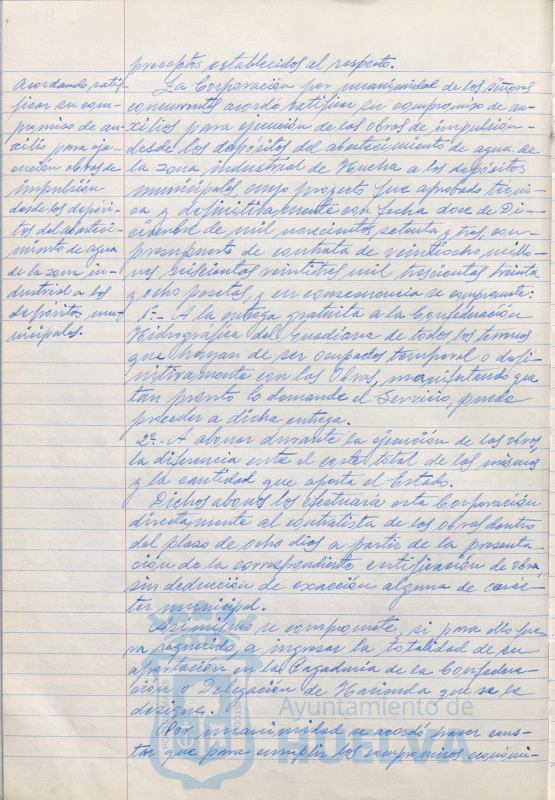 preceptos establecidos al respecto.
Acordando ratificar su compromiso de auxilio para ejecución obras de impulsión desde los depósitos del abastecimiento de agua de la zona industrial a los depósitos municipales.
La Corporación por unanimidad de los señores
concurrentes acordó ratificar su compromiso de au-
xilios para ejecución de las obras de impulsión
desde los depósitos del abastecimiento de agua, de
la zona industrial de Huelva a los depósitos
municipales, cuyo proyecto fue aprobado técni-
ca y definitivamente con fecha doce de Di-
ciembre de mil novecientos setenta y tres, con
presupuesto de contrata de veintiocho millo-
nes, seiscientas veintitres mil trescientas treinta
y ocho pesetas, y en consecuencia se compromete:
1º.- A la entrega gratuita a la Confederación
Hidrográfica del Guadiana de todos los terrenos
que hayan de ser ocupados temporal o defi-
nitivamente con las Obras, manifestando que
tan pronto lo demande el Servicio, puede
proceder a dicha entrega.
2º.- A abonar durante la ejecución de las obras,
la diferencia entre el coste total de las mismas
y la cantidad que aporta el Estado.
Dichos abonos los efectuará esta Corporación
directamente al contratista de las obras dentro
del plazo de ocho días a partir de la presenta-
ción de la correspondiente certificación de obra,
sin deducción de exacción alguna de carác-
ter municipal.
Asimismo se compromete, si para ello fue-
ra requerido, a ingresar la totalidad de su
aportación en la Pagaduría de la Confedera-
ción o Delegación de Hacienda que se le
designe.
Por unanimidad se acordó hacer cons-
tar que para cumplir los compromisos económi-
Ayuntamiento de
HUELVA